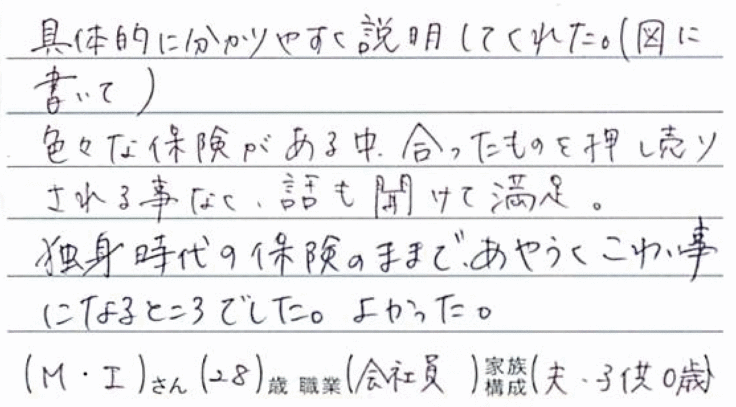 具体的に分かりやすく説明してくれた。(図に
書いて)
色々な保険がある中、合ったものを押し売り
される事なく、話も聞けて満足。
独身時代の保険のままで、あやうくこわい事
になるところでした。よかった。
(M・I)さん(28)歳 職業(会社員 )家族構成(夫・子供0歳)